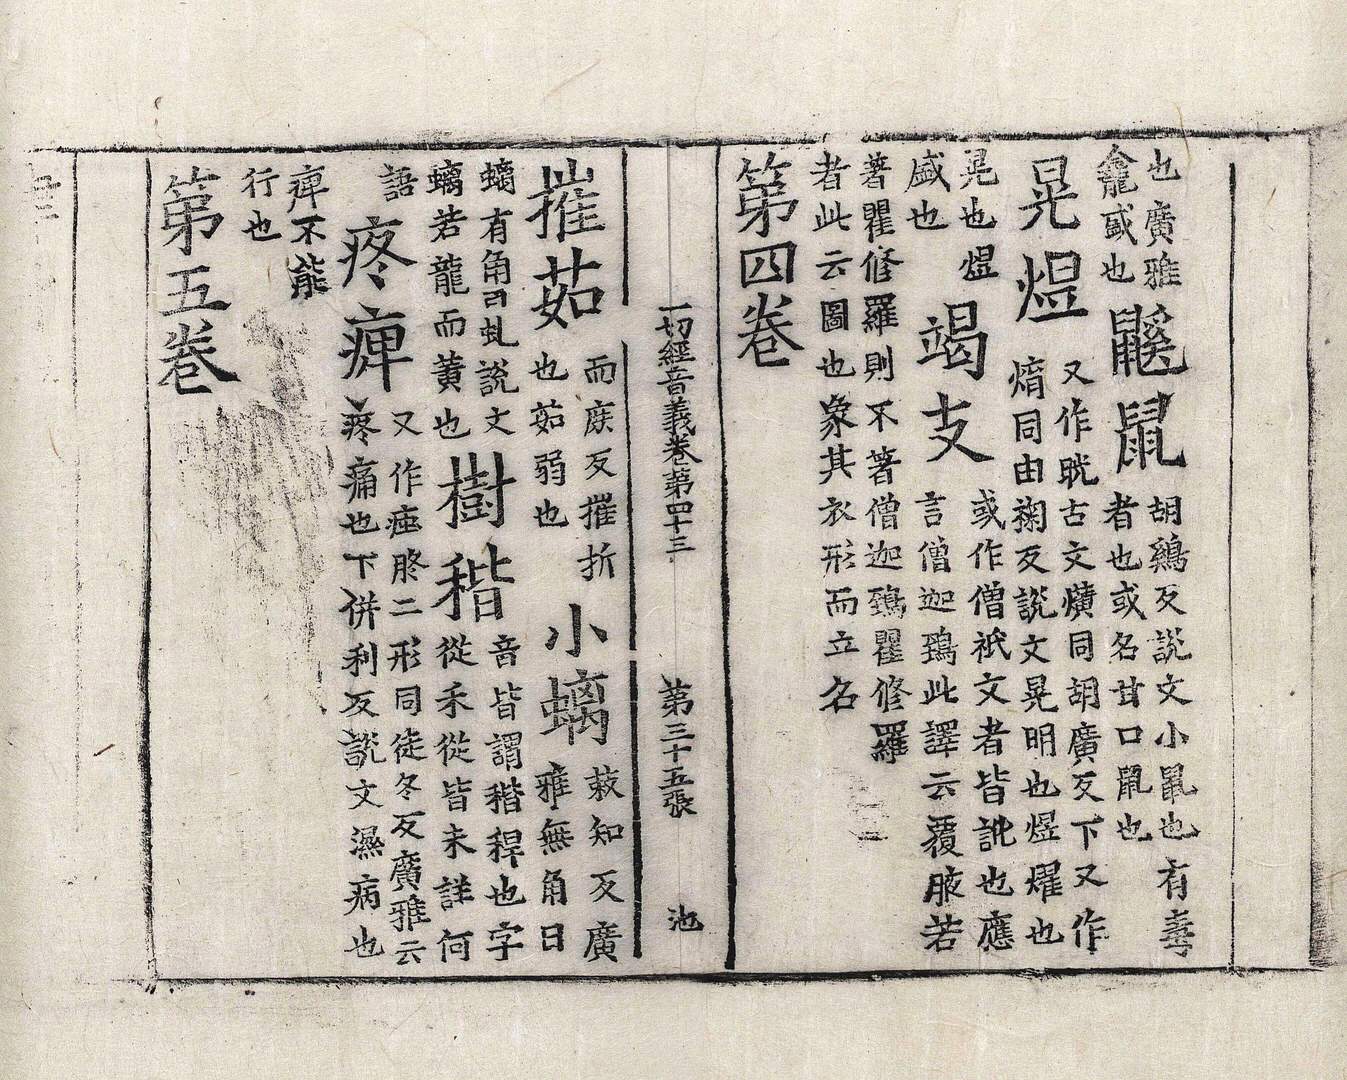 也廣雅
龕盛也
鼷鼠
胡鷄反說文小鼠也有毒
者也或名甘口鼠也
晃煜
又作晄古文爌同胡廣反下又作
焴同由掬反說文晃明也煜燿也
晃也煜
盛也
竭支
或作僧祇文者皆訛也應
言僧迦鵄此譯云覆腋若
著瞿修羅則不著僧迦鵄瞿修羅
者此云圖也象其衣形而立名
第四卷
一切經音義卷第四十三 第三十五張 池
摧茹
而庶反摧折
也茹弱也
小螭
敕知反廣
雅無角曰
螭有角曰虬說文
螭若龍而黃也
樹稭
音皆謂稭稈也字
從禾從皆未詳何
語
疼痺
又作痋胮二形同徒冬反廣雅云
疼痛也下併利反說文濕病也
痺不能
行也
第五卷